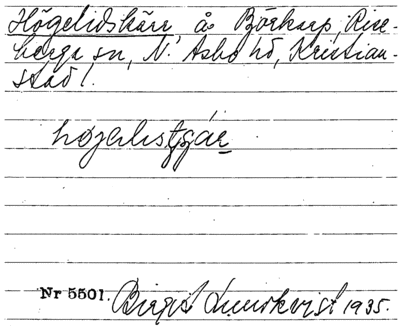 Högelidskärr, å Börkarp, Rise-
berga sn, N. Asbo hd, Kristian-
stad l.
Nr 5501. Birgit Lundkvist 1935.